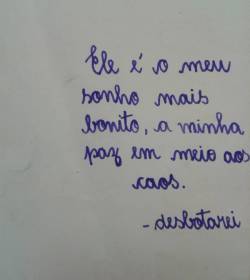 Ele é o meu
sonho mais
bonito, a minha
paz em meio aos
caos.
- desbotarei